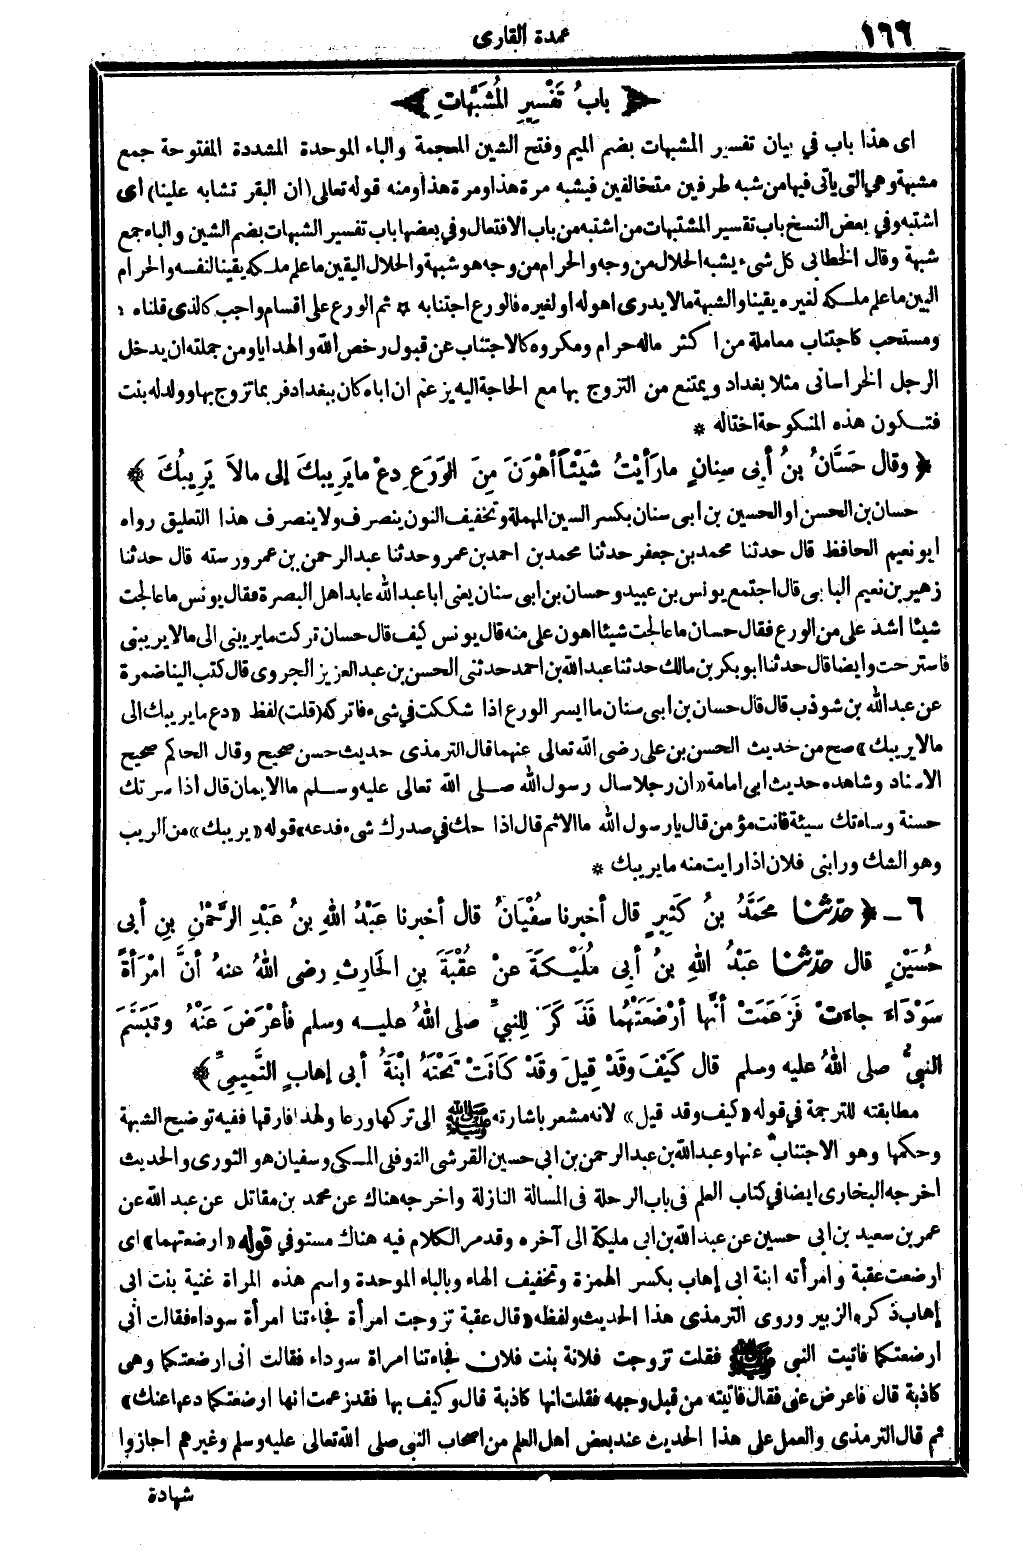 ١٦٦
عمدة القارى
﴿ بابُ تَفْسِيرِ المُشَبَّهاتِ ﴾
اى هذا باب في بيان تفسير المشبهات بضم الميم وفتح الشين المعجمة والباء الموحدة المشددة المفتوحة جمع
مشبهة وهي التى يأتى فيها من شبه طرفين متخالفين فيشبه مرة هذا ومرة هذا ومنه قوله تعالى (ان البقر تشابه علينا) اى
اشتبه وفي بعض النسخ باب تفسير المشتبهات من اشتبه من باب الافتعال وفي بعضها باب تفسير الشبهات بضم الشين والباء جمع
شبهة وقال الخطابى كل شىء يشبه الحلال من وجه والحرام من وجه هو شبهة والحلال اليقين ما علم ملكه يقينا لنفسه والحرام
البين ما علم ملكه لغيره يقينا والشبهة ما لا يدرى اهو له او لغيره فالورع اجتنابه * ثم الورع على اقسام واجب كالذى قلناه *
ومستحب كاجتناب معاملة من اكثر ماله حرام ومكروه كالاجتناب عن قبول رخص الله والهدايا ومن جملته ان يدخل
الرجل الخراسانى مثلا بغداد ويمتنع من التزوج بها مع الحاجة اليه يزعم ان اباه كان ببغداد فربما تزوج بها وولد له بنت
فتكون هذه المنكوحة اختا له *
﴿ وقال حَسَّانُ بنُ أبِى سِنانٍ مارَأيْتُ شَيْئاً أهْوَنَ مِنَ الوَرَعِ دعْ ما يَرِيبكَ إلى مالاَ يَرِيبُكَ ﴾
حسان بن الحسن او الحسين بن ابى سنان بكسر السين المهملة وتخفيف النون ينصرف ولا ينصرف هذا التعليق رواه
ابو نعيم الحافظ قال حدثنا محمد بن جعفر حدثنا محمد بن احمد بن عمر وحدثنا عبد الرحمن بن عمر ورسته قال حدثنا
زهير بن نعيم البابى قال اجتمع يونس بن عبيد وحسان بن ابى سنان يعنى ابا عبد الله عابد اهل البصرة فقال يونس ما عالجت
شيئا اشد على من الورع فقال حسان ما عالجت شيئا اهون على منه قال يونس كيف قال حسان تركت ما يريبنى الى ما لا يريبنى
فاسترحت وايضا قال حدثنا ابو بكر بن مالك حدثنا عبد الله بن احمد حدثنى الحسن بن عبد العزيز الجروى قال كتب الينا ضمرة
عن عبد الله بن شوذب قال قال حسان بن ابى سنان ما ايسر الورع اذا شككت في شىء فاتركه (قلت) لفظ «دع ما يريبك الى
ما لا يريبك» صح من حديث الحسن بن على رضى الله تعالى عنهما قال الترمذى حديث حسن صحيح وقال الحاكم صحيح
الاسناد وشاهده حديث ابى امامة «ان رجلا سال رسول الله صلى الله تعالى عليه وسلم ما الايمان قال اذا سرتك
حسنة وساءتك سيئة فانت مؤمن قال يا رسول الله ما الاثم قال اذا حك في صدرك شىء فدعه» قوله «يريبك» من الريب
وهو الشك ورابنى فلان اذا رايت منه ما يريبك *
٦ - ﴿ حدّثنا محَمَّدُ بنُ كَثِيرٍ قال أخبرنا سفْيَانُ قال أخبرنا عَبْدُ اللهِ بنُ عَبْدِ الرَّحْمٰنِ بنِ أبى
حُسَيْنٍ قال حدّثنا عَبْدُ اللهِ بنُ أبِى مُلَيْكةَ عنْ عقْبَةَ بنِ الحَارِثِ رضى اللهُ عنهُ أنَّ امْرَأةً
سَوْدَاءَ جاءتْ فزَعَمَتْ أنَّها أرْضَعَتْهُما فَذَ كَرَ لِلنبيِّ صلى اللهُ عليه وسلم فأعْرَضَ عَنْهُ وتبَسَّمَ
النبيُّ صلى اللهُ عليه وسلم قال كَيْفَ وقَدْ قِيلَ وقَدْ كانَتْ تحْتَهُ ابْنَةُ أبى إهابٍ التَّمِيمِىِّ ﴾
مطابقته للترجمة في قوله «كيف وقد قيل» لانه مشعر باشارته ﷺ الى تركها ورعا ولهذا فارقها ففيه توضيح الشبهة
وحكمها وهو الاجتناب عنها وعبد الله بن عبد الرحمن بن ابي حسين القرشى النوفلى المكى وسفيان هو الثورى والحديث
اخرجه البخارى ايضا في كتاب العلم فى باب الرحلة فى المسالة النازلة واخرجه هناك عن محمد بن مقاتل عن عبد الله عن
عمر بن سعيد بن ابى حسين عن عبد الله بن ابى مليكة الى آخره وقد مر الكلام فيه هناك مستوفي قوله «ارضعتهما» اى
ارضعت عقبة وامرأته ابنة ابى إهاب بكسر الهمزة وتخفيف الهاء وبالباء الموحدة واسم هذه المراة غنية بنت ابى
إهاب ذكره الزبير وروى الترمذى هذا الحديث ولفظه «قال عقبة تزوجت امرأة فجاءتنا امرأة سوداء فقالت انى
ارضعتكما فاتيت النبى ﷺ فقلت تزوجت فلانة بنت فلان فجاءتنا امراة سوداء فقالت انى ارضعتكما وهى
كاذبة قال فاعرض عنى فقال فاتيته من قبل وجهه فقلت انها كاذبة قال وكيف بها فقد زعمت انها ارضعتكما دعها عنك»
ثم قال الترمذى والعمل على هذا الحديث عند بعض اهل العلم من اصحاب النبى صلى الله تعالى عليه وسلم وغيرهم اجازوا
شهادة